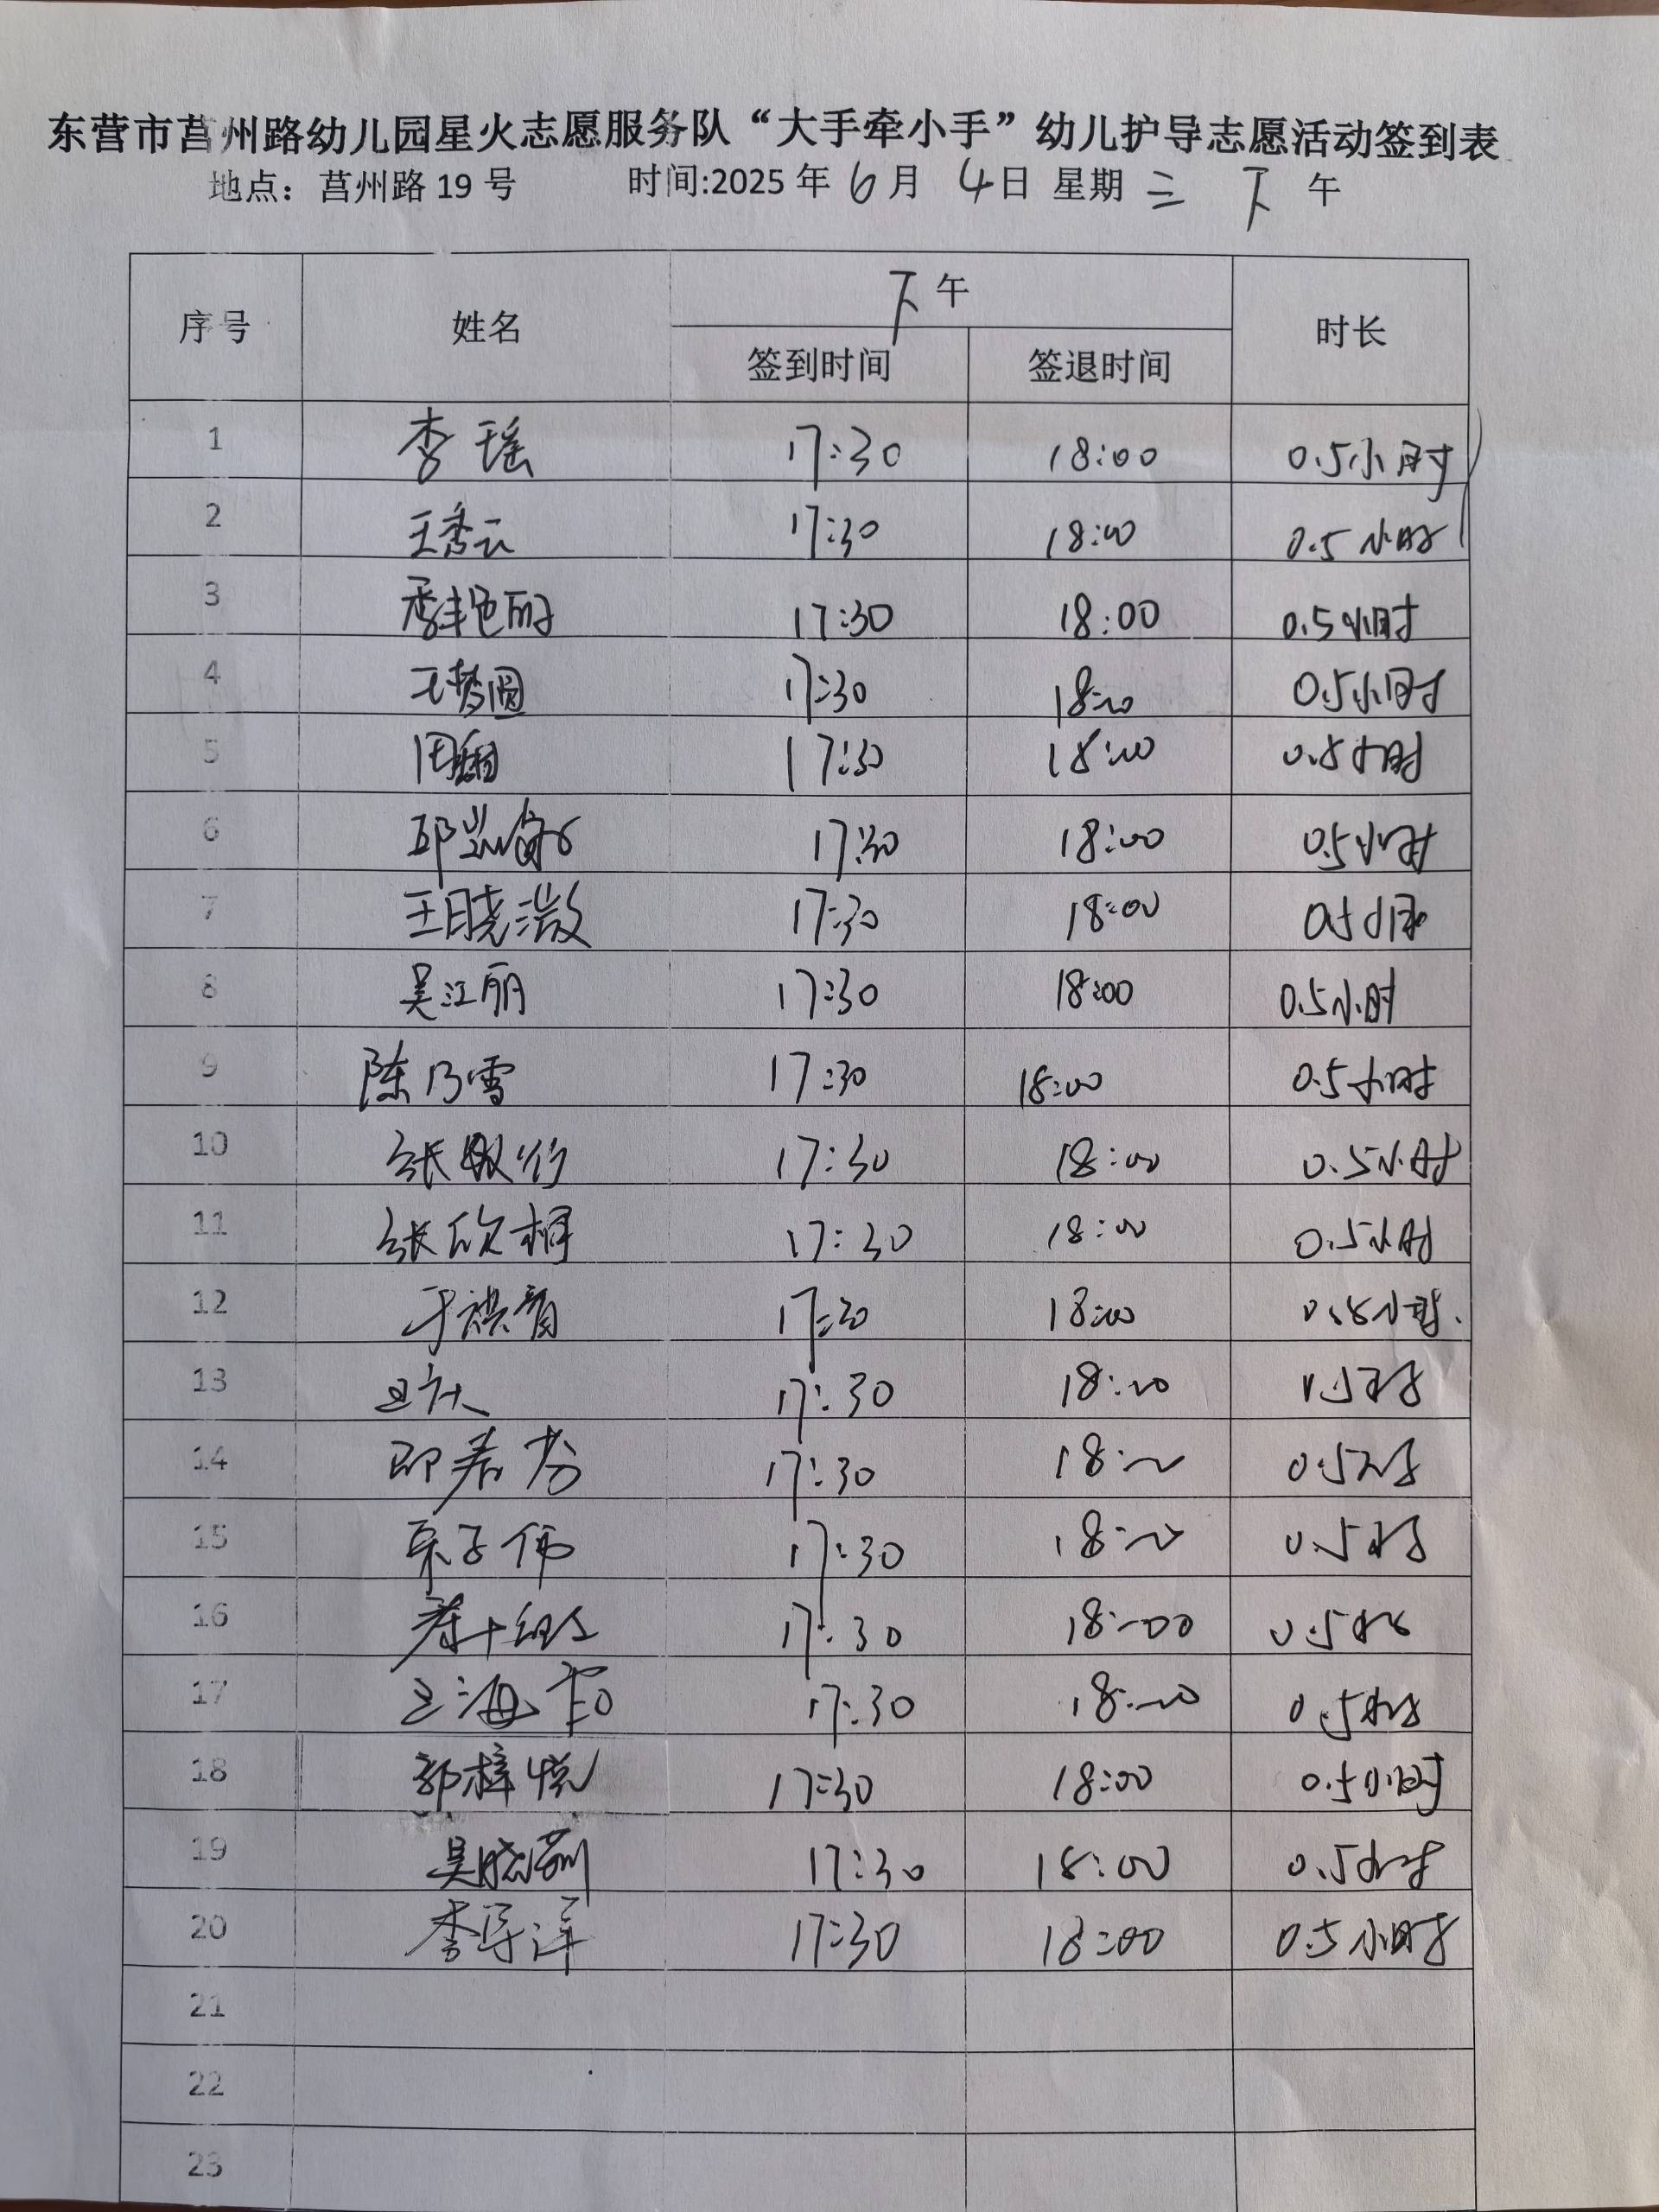 东营市莒州路幼儿园星火志愿服务队“大手牵小手”幼儿护导志愿活动签到表
地点：莒州路 19 号 时间:2025 年 6 月 4 日 星期 三 下 午
序号 姓名 下 午 时长
签到时间 签退时间
1 李瑶 17:30 18:00 0.5小时
2 王秀云 17:30 18:00 0.5小时
3 季艳丽 17:30 18:00 0.5小时
4 王梦圆 17:30 18:00 0.5小时
5 周翻 17:30 18:00 0.5小时
6 邱 17:30 18:00 0.5小时
7 王晓漵 17:30 18:00 0.5小时
8 吴江丽 17:30 18:00 0.5小时
9 陈乃雪 17:30 18:00 0.5小时
10 张 17:30 18:00 0.5小时
11 张欣桐 17:30 18:00 0.5小时
12 于 17:30 18:00 0.5小时
13 17:30 18:00 0.5小时
14 17:30 18:00 0.5小时
15 宋子伟 17:30 18:00 0.5小时
16 17:30 18:00 0.5小时
17 王海 17:30 18:00 0.5小时
18 郭梓悦 17:30 18:00 0.5小时
19 吴晓莉 17:30 18:00 0.5小时
20 李导洋 17:30 18:00 0.5小时
21
22
23